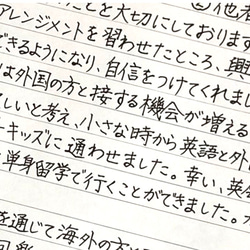 たことを大切にしております
アレンジメントを習わせたところ、興
できるようになり、自信をつけてくれまし
は外国の方と接する機会が増える
しいと考え、小さな時から英語と外
ーキッズに通わせました。幸い、英
単身留学で行くことができました。
を通じて海外の方